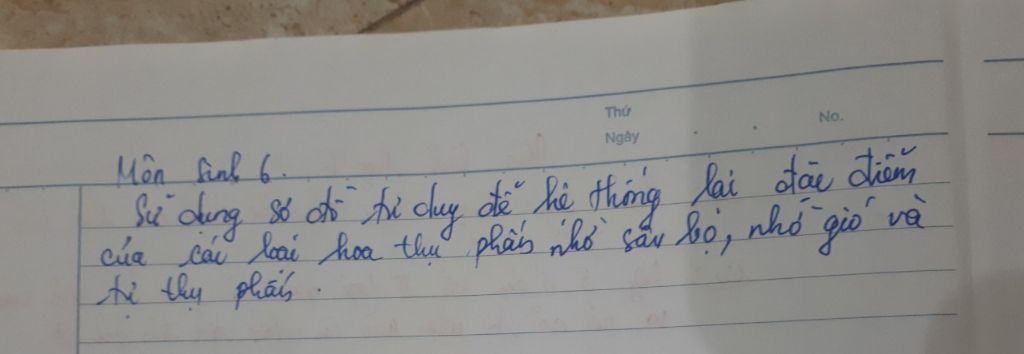 Thứ
Ngày
No.
Môn Sinh 6.
Sử dụng sơ đồ tư duy để hệ thống lại đặc điểm
của các loài hoa thụ phấn nhờ sâu bọ, nhờ gió và
tự thụ phấn.